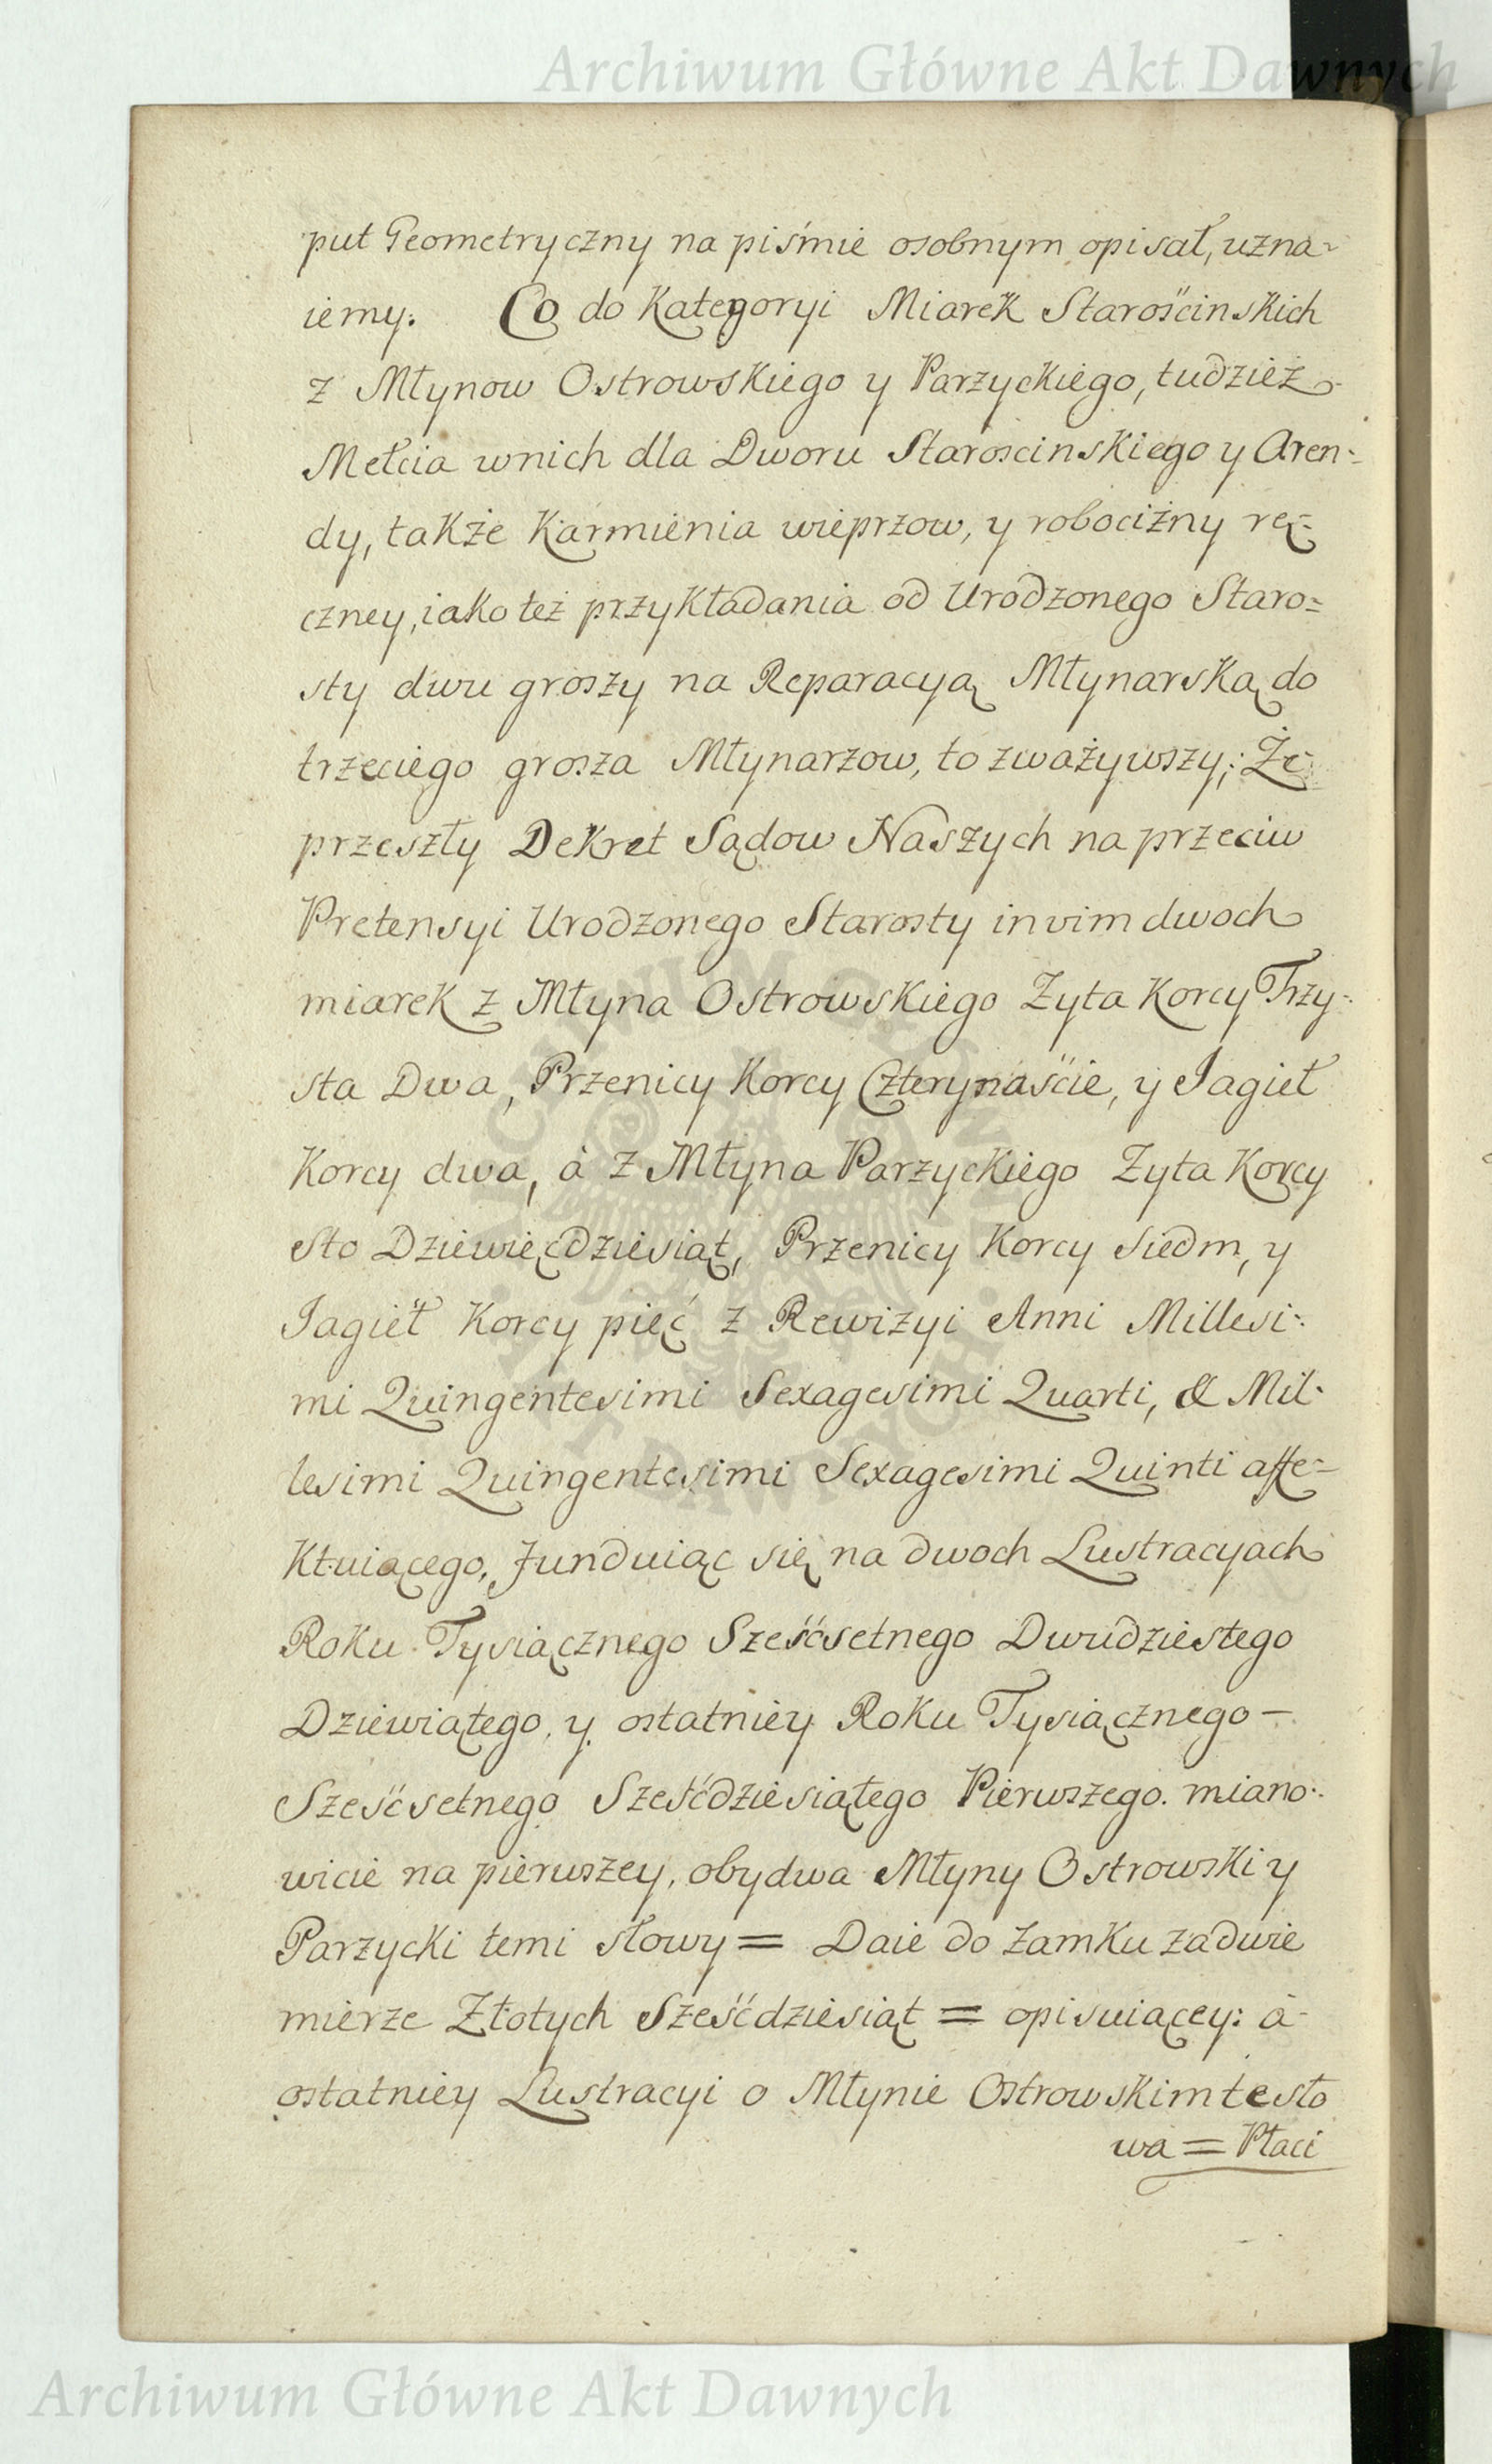 Archiwum Główne Akt Dawnych
put Geometryczny na piśmie osobnym opisał, uzna-
iemy. Co do Kategoryi Miarek Starościnskich
z Młynow Ostrowskiego y Parzyckiego, tudzież
Mełcia wnich dla Dworu Staroscinskiego y Aren-
dy, także Karmienia wieprzow, y robocizny rę-
czney, iako też przykładania od Urodzonego Staro=
sty dwu groszy na Reparacyą Młynarską do
trzeciego grosza Młynarzow, to zważywszy; Że
przeszły Dekret Sądow Naszych na przeciw
Pretensyi Urodzonego Starosty in vim dwoch
miarek z Młyna Ostrowskiego Zyta Korcy Trzy-
sta Dwa, Przenicy Korcy Czterynaście, y Jagieł
Korcy dwa, à z Młyna Parzyckiego Zyta Korcy
Sto Dziewięcdziesiąt, Przenicy Korcy siedm, y
Jagieł Korcy pięć z Rewizyi Anni Millesi-
mi Quingentesimi Sexagesimi Quarti, & Mil-
lesimi Quingentesimi Sexagesimi Quinti affe-
Ktuiącego, funduiąc się na dwoch Lustracyach
Roku Tysiącznego Sześćsetnego Dwudziestego
Dziewiątego, y ostatniey Roku Tysiącznego —
Sześćsetnego Sześćdziesiątego Pierwszego. miano-
wicie na pierwszey, obydwa Młyny Ostrowski y
Parzycki temi słowy = Daie do Zamku za dwie
mierze Złotych Sześćdziesiąt = opisuiącey: à
ostatniey Lustracyi o Młynie Ostrowskim te sło
wa = Płaci
ARCHIWUM GŁÓWNE AKT DAWNYCH
Archiwum Główne Akt Dawnych